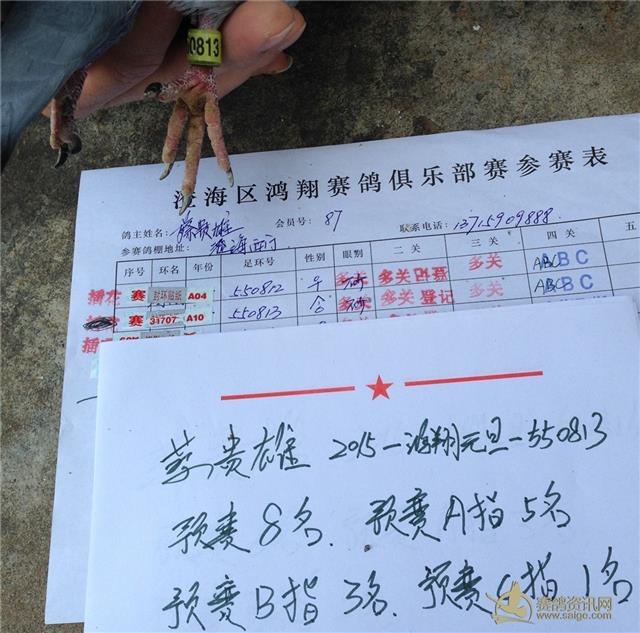 0813
澄海区鸿翔赛鸽俱乐部赛参赛表
鸽主姓名: 会员号: 87 联系电话: 13715909888
参赛鸽棚地址: 澄海西门
序号 环名 年份 足环号 性别 眼别 二关 三关 四关 五
插花 赛 封环贴纸 A04 550812 多关登记 多关 ABC ABC
赛 31707 A10 550813 多关登记 多关 ABC ABC
插
蔡贵雄 2015-鸿翔元旦-550813
预赛8名、预赛A指5名
预赛B指3名、预赛C指1名
赛鸽资讯网
www.saige.com